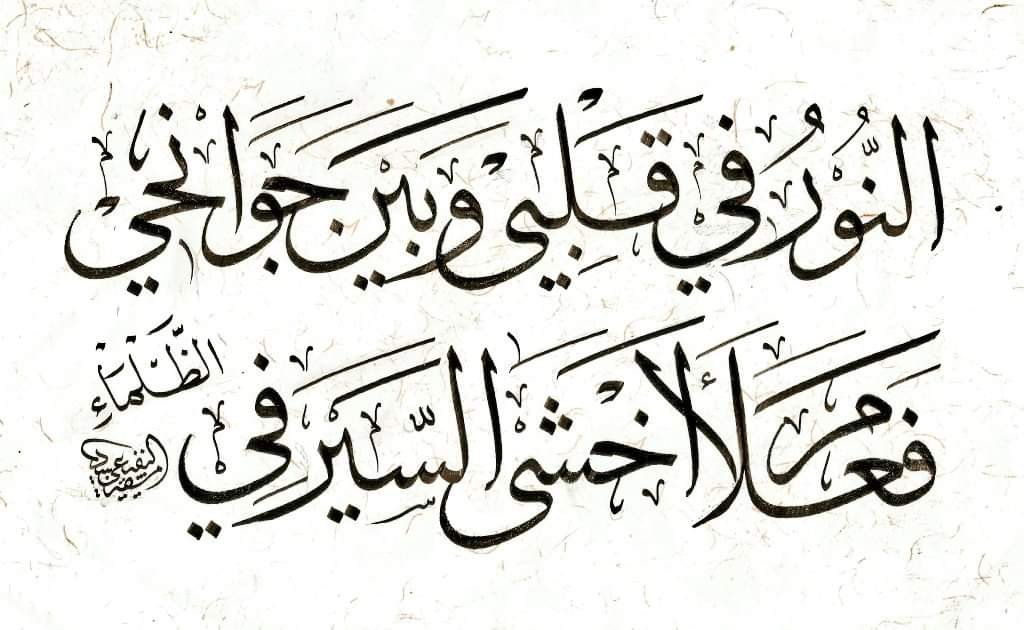 النُّورُ فِي قَلْبِي وَبَيْنَ جَوَانِحِي
فَعَلَامَ أَخْشَى السَّيْرَ فِي الظَّلْمَاءِ